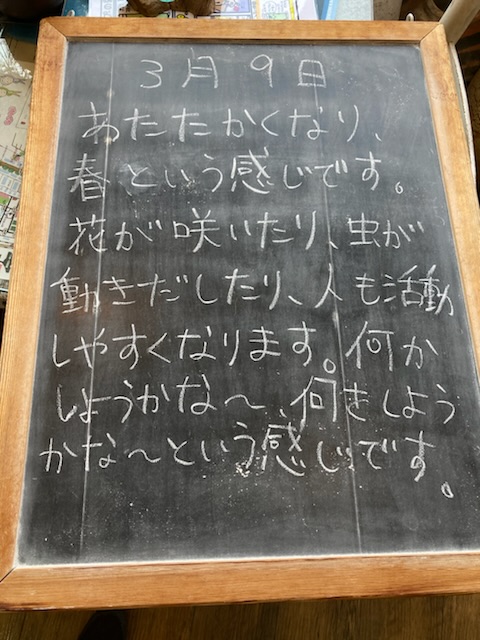 3月9日
あたたかくなり、
春という感じです。
花が咲いたり、虫が
動きだしたり、人も活動
しやすくなります。何か
しようかな～、何をしよう
かな～という感じです。